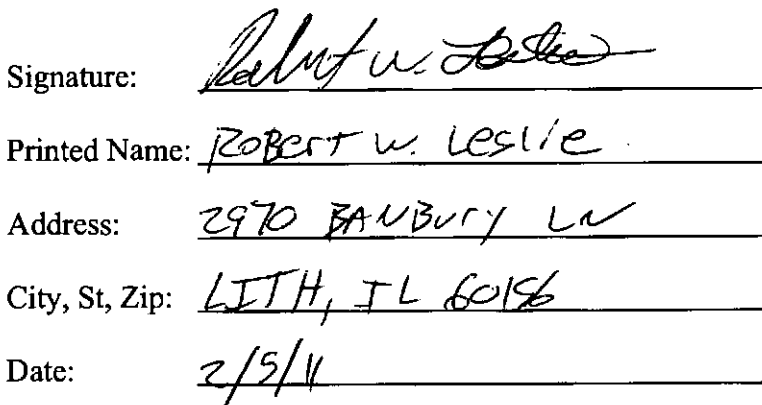 Signature: Robert W. Leslie
Printed Name: Robert W. Leslie
Address: 2970 BANBURY LN
City, St, Zip: LITH, IL 60156
Date: 2/5/11